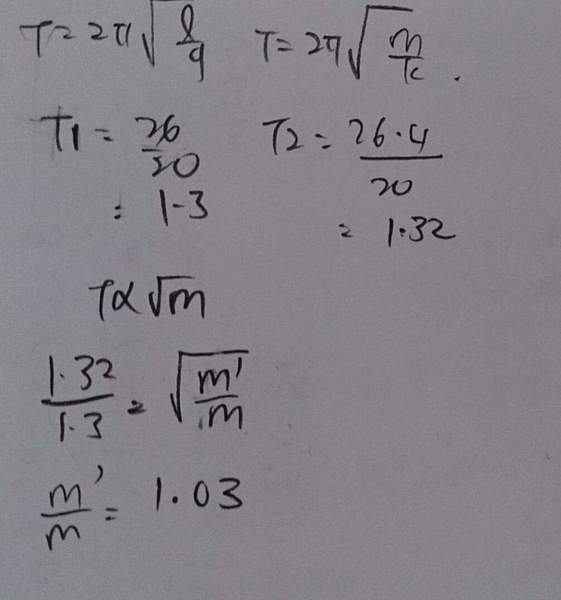 T = 2π√(l/g) T = 2π√(m/k) .
T1 = 26/20 T2 = 26.4/20
= 1.3 = 1.32
T ∝ √m
1.32/1.3 = √(m'/m)
m'/m = 1.03